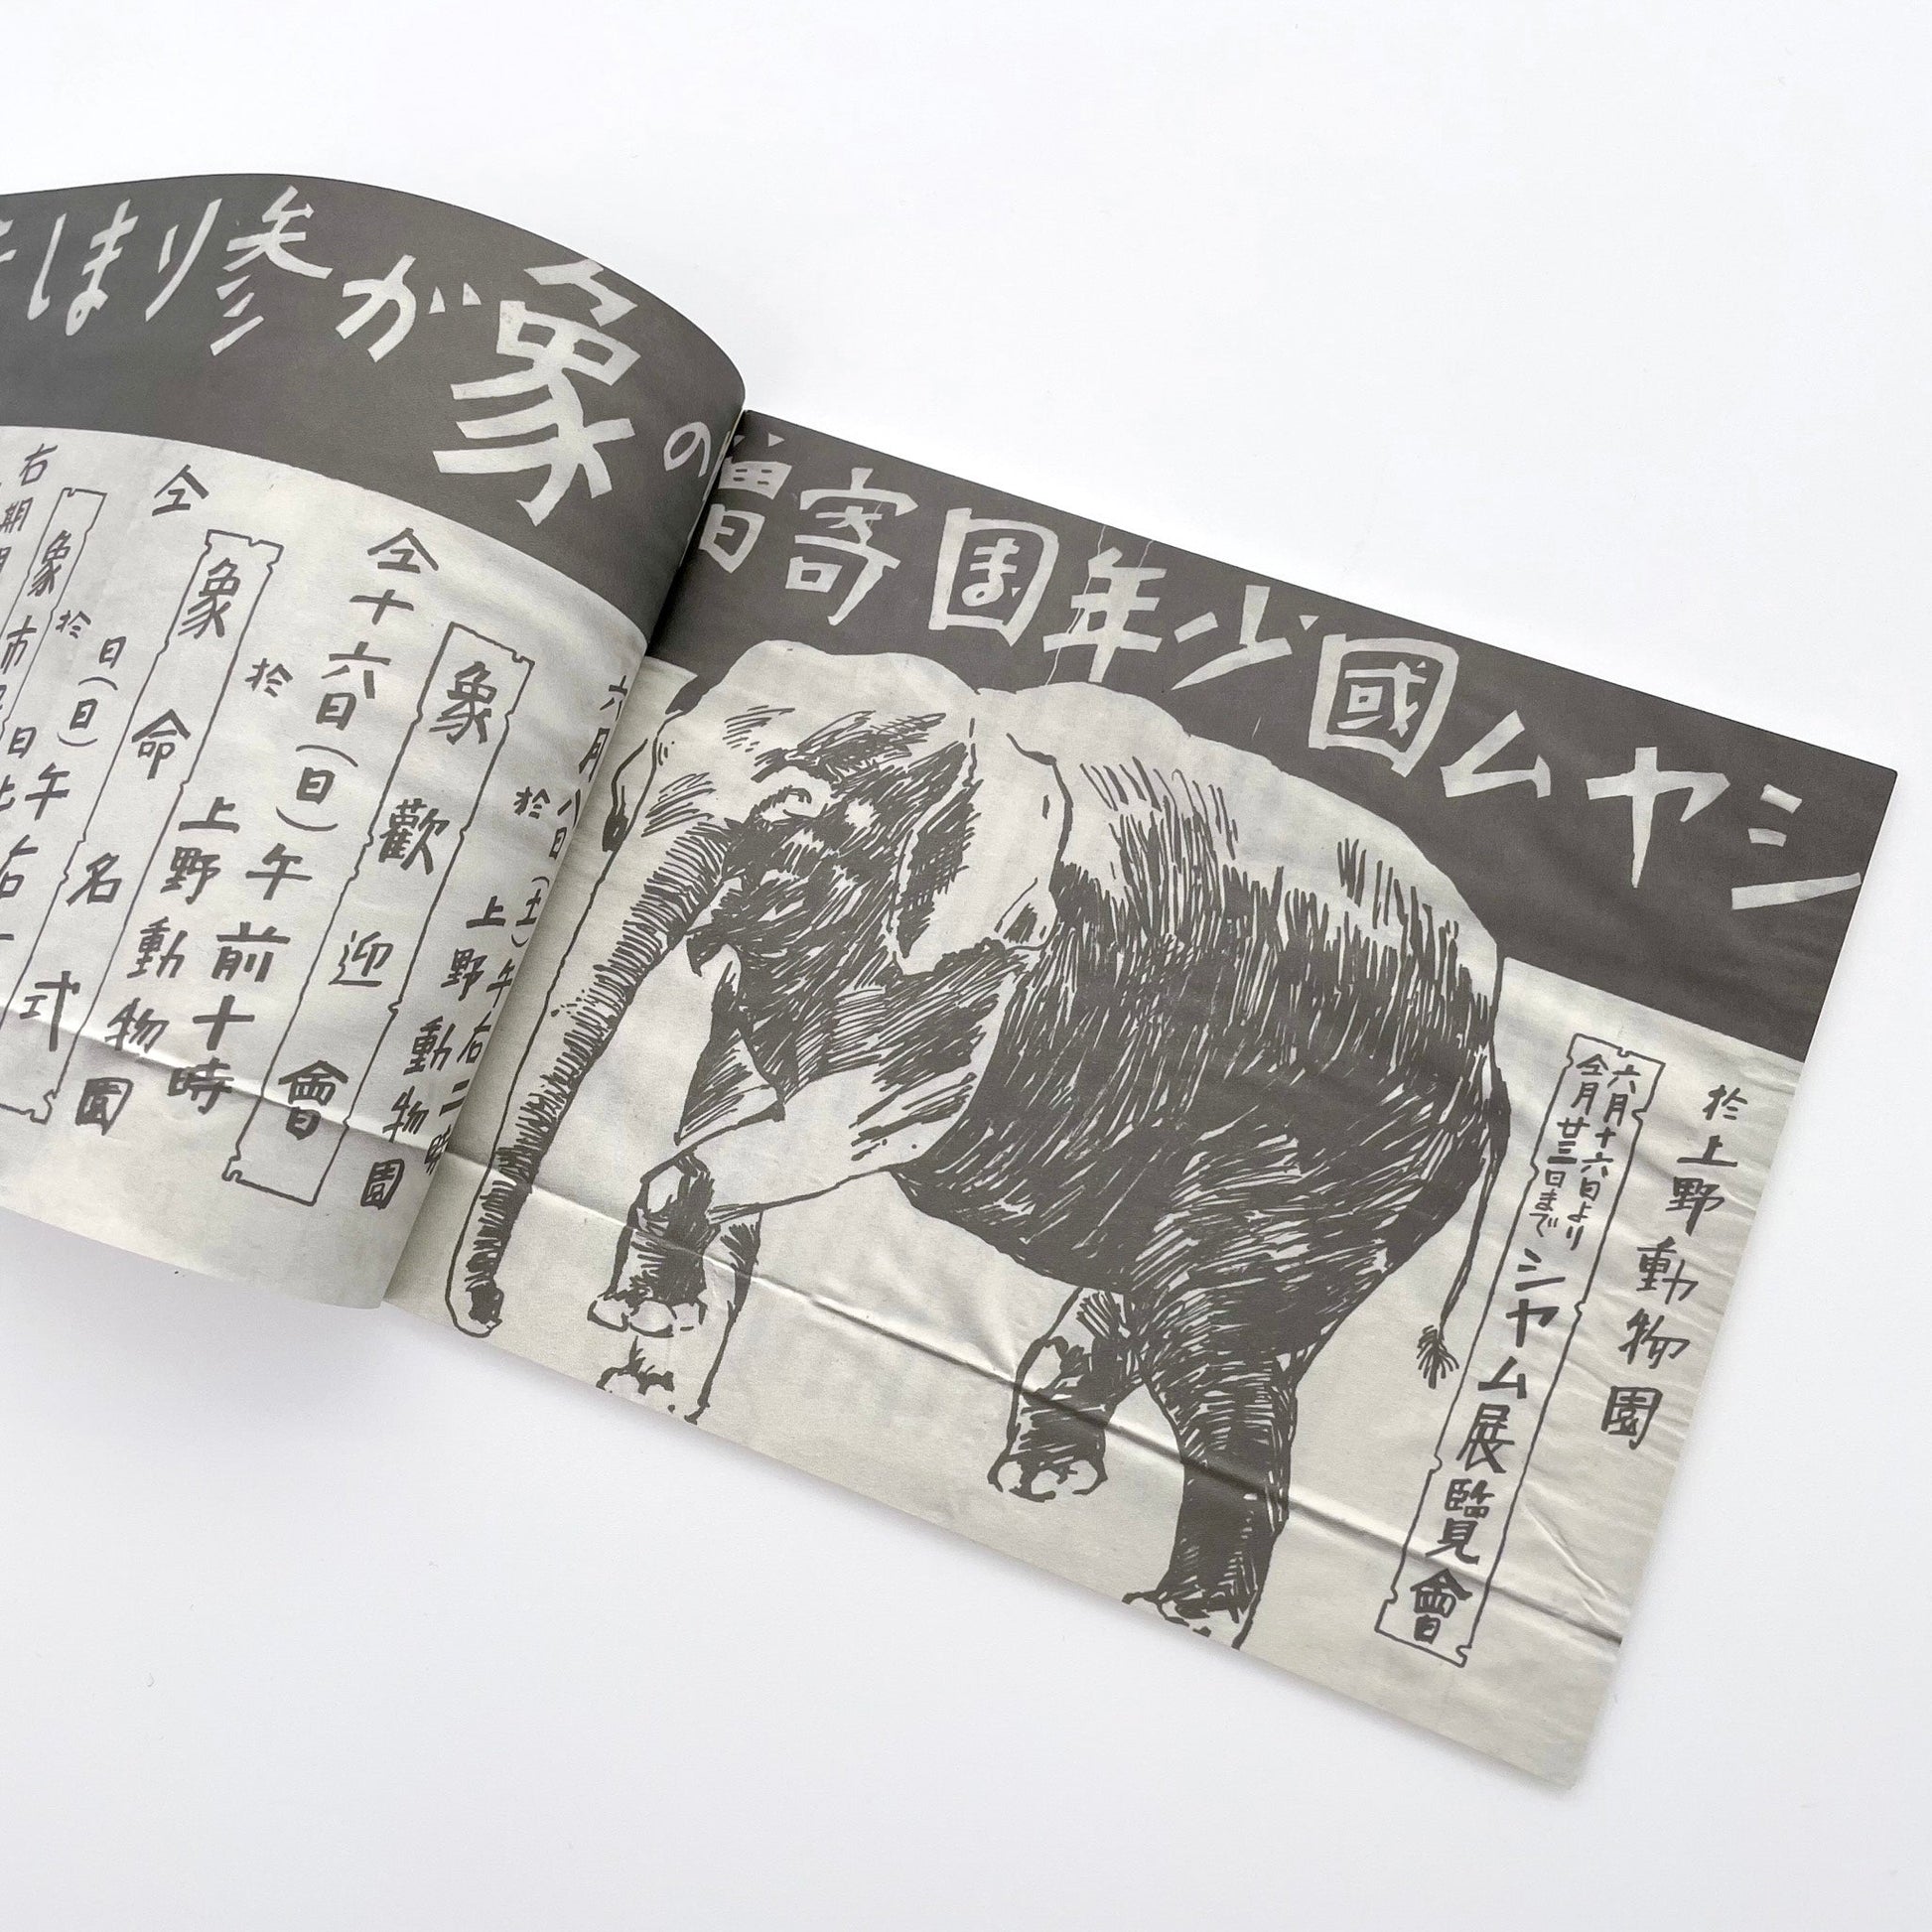 シヤム國少年團寄贈の象が参りまし
於上野動物園
六月十六日より
仝月廿三日まで
シヤム展覧會
六月八日(土)午后二時
於上野動物園
象歡迎會
仝十六日(日)午前十時
於上野動物園
象命名式
仝日(日)午后
於日比
象市
右期間